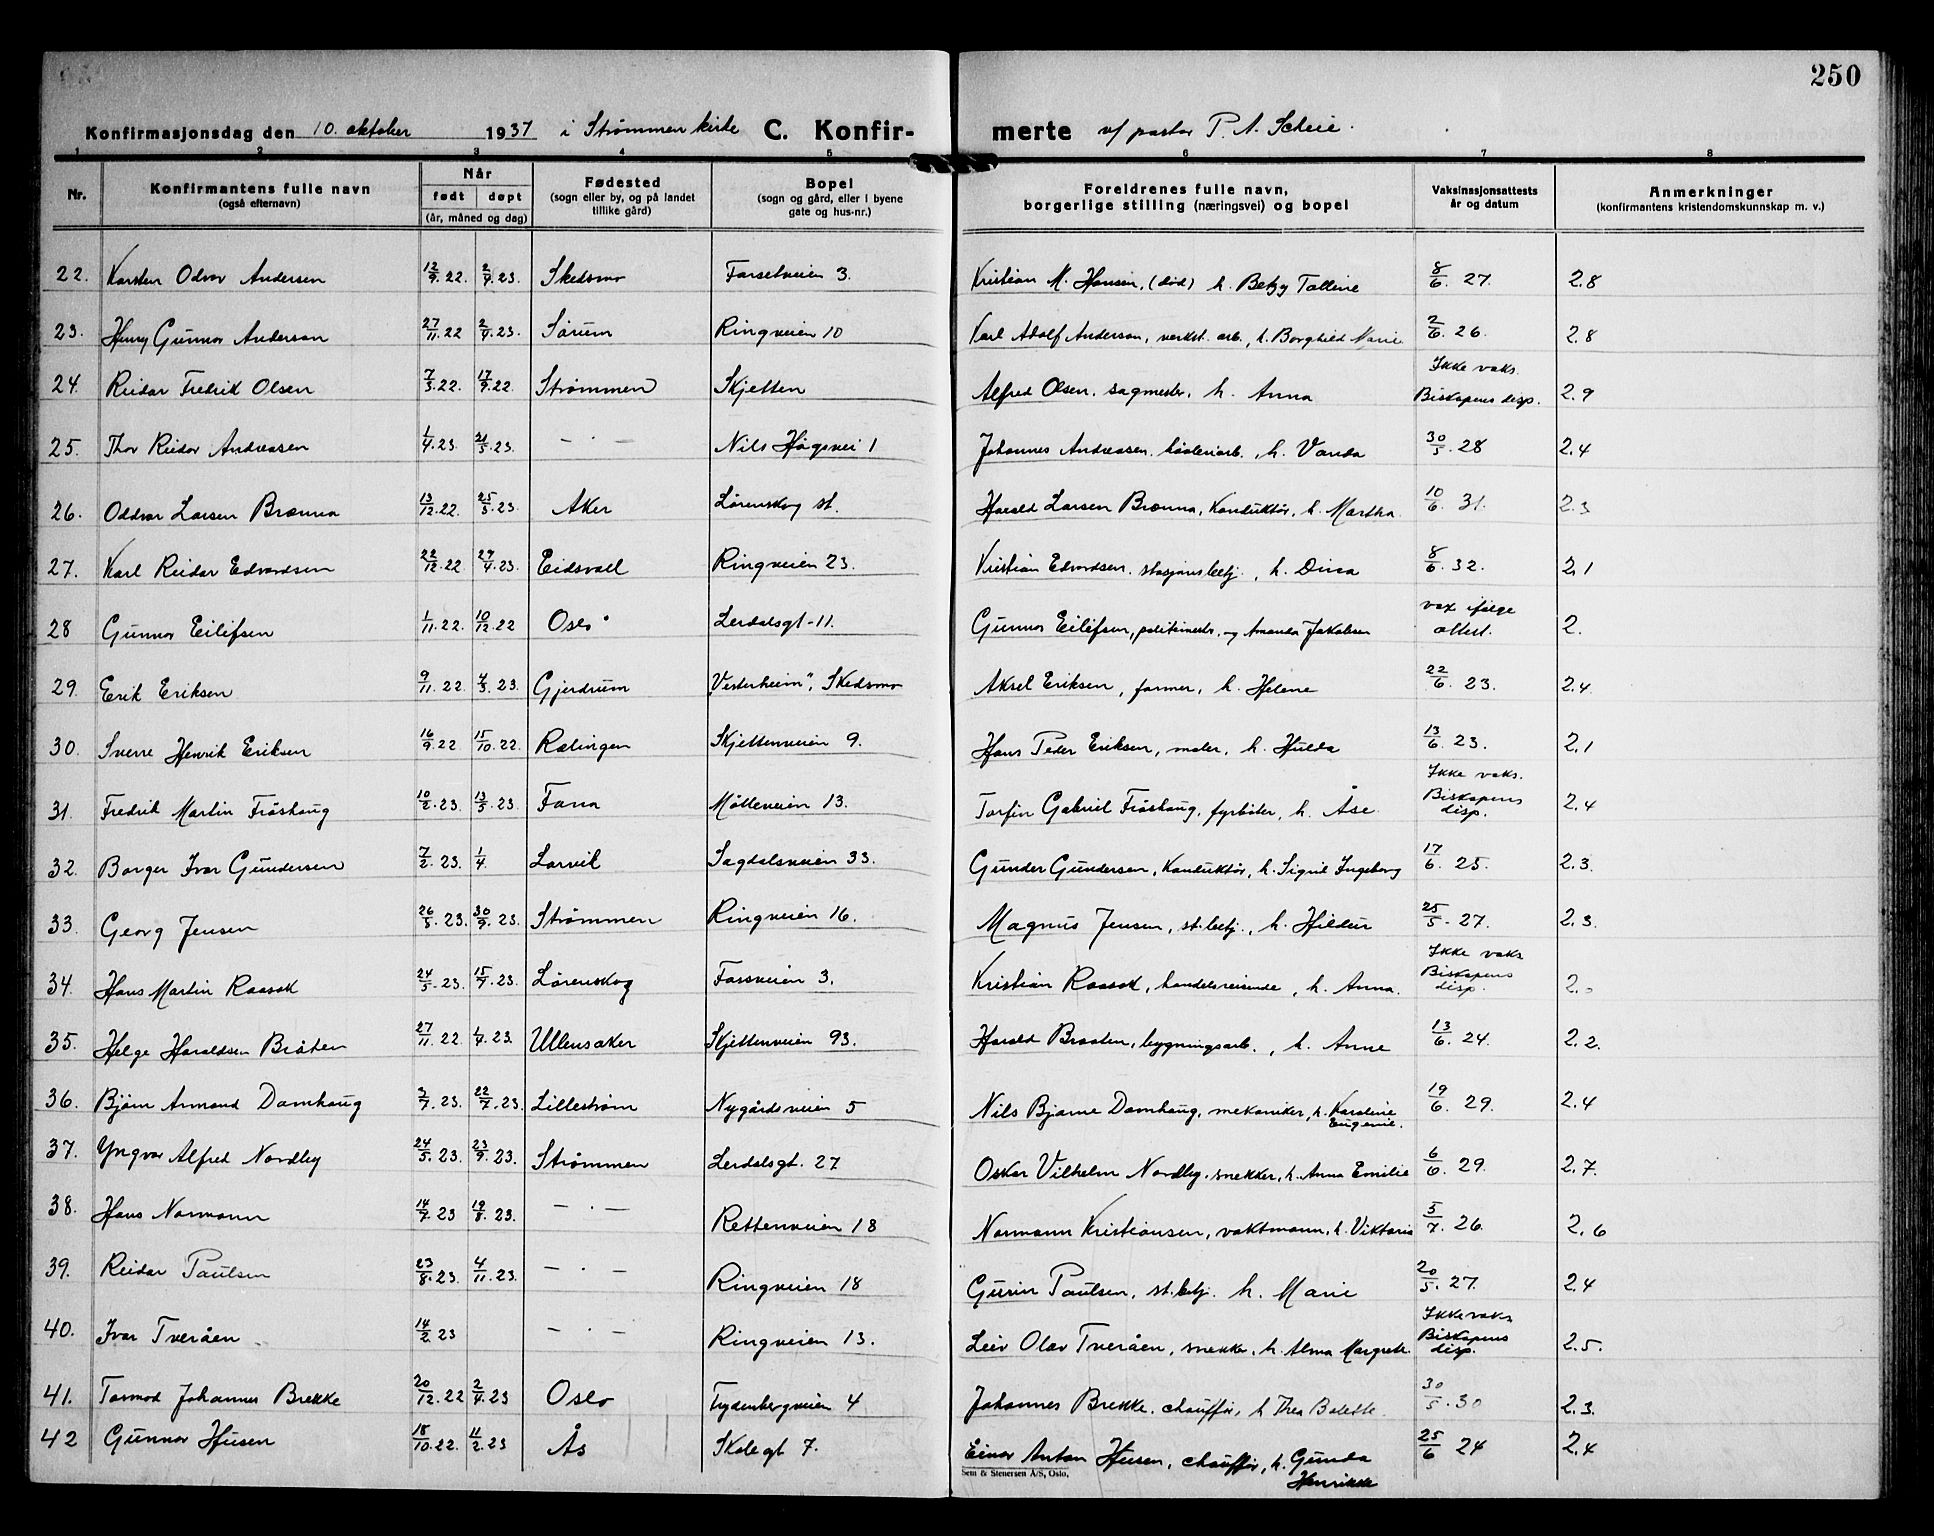 250
Konfirmasjonsdag den 10. oktober 1937 i Strømmen kirke C. Konfirmerte v/ pastor P. A. Scheie.
1 2 3 4 5 6 7 8
Nr. Konfirmantens fulle navn (også efternavn) Når født døpt (år, måned og dag) Fødested (sogn eller by, og på landet tillike gård) Bopel (sogn og gård, eller i byene gate og hus-nr.) Foreldrenes fulle navn, borgerlige stilling (næringsvei) og bopel Vaksinasjonsattests år og datum Anmerkninger (konfirmantens kristendomskunnskap m. v.)
22. Karsten Odvar Andersen 12/9.22. 2/4.23. Skedsmo Farsetveien 3. Kristian M. Hansen, (død) h. Betzy Talline 8/6 27. 2.8
23. Henry Gunnar Anderson 27/11.22 2/4.23. Sørum Ringveien 10 Karl Adolf Anderson, verkst. arb., h. Borghild Marie 2/6 26. 2.8
24. Reidar Fredrik Olsen 7/3.22. 17/9.22. Strømmen Skjetten Alfred Olsen, sagmester, h. Anna Ikke vaks. Biskopens disp. 2.9
25. Thor Reidar Andreassen 1/4.23. 21/5.23 — . — Nils Høgsvei 1 Johannes Andreassen, h. Vanda 30/5.28 2.4
26. Oddvar Larsen Brænna 13/12.22. 25/3.23. Aker Lørenskog st. Harald Larsen Brænna, Konduktør, h. Martha 10/6 31. 2.3
27. Karl Reidar Edvardsen 22/12.22 29/4.23. Eidsvoll Ringveien 23. Kristian Edvardsen, stasjonsbetj., h. Dina 8/6.32. 2,1
28 Gunnar Eilifsen 1/11.22. 10/12.22 Oslo Lerdalsgt-11. Gunnar Eilifsen, politimestr. og Amanda Jakobsen vax ifølge attest. 2.
29. Erik Eriksen 9/11.22. 4/3.23. Gjerdrum "Vesterheim", Skedsmo Aksel Eriksen, former, h. Helene 22/6.23. 2.4
30. Sverre Henrik Eriksen 16/9.22 15/10.22. Rælingen Skjettenveien 9. Hans Peder Eriksen, maler, h. Hulda 13/6.23. 2.1
31. Fredrik Martin Frøshaug 10/2.23. 13/5.23. Fana Mølleveien 13. Torfin Gabriel Frøshaug, fyrbøter, h. Åse Ikke vaks. Biskopens disp. 2.4
32. Borger Ivar Gundersen 7/2.23. 1/4. Larvik Sagdalsveien 33. Gunder Gundersen, Konduktør, h. Sigrid Ingeborg 17/6.25. 2.3.
33. Georg Jensen 26/5.23. 30/9.23. Strømmen Ringveien 16. Magnus Jensen, st.betj., h. Hildur 25/5.27. 2.3.
34. Hans Martin Raasok 24/5.23. 15/7.23. Lørenskog Farsveien 3. Kristian Raasok, handelsreisende, h. Anna. Ikke vaks Biskopens disp. 2.
35. Helge Haraldsen Bråten 27/11.22. 1/4.23. Ullensaker Skjettenveien 93. Harald Braaten, bygningsarb., h. Anne 13/6.24. 2.2.
36. Bjørn Armand Damhaug 3/7.23. 22/7.23. Lillestrøm Nygårdsveien 5 Nils Bjarne Damhaug, mekaniker, h. Karoline Eugenie. 19/6.29. 2.4
37. Yngvar Alfred Nordby 24/5.23. 23/9.23. Strømmen Lerdalsgt. 27 Oskar Vilhelm Nordby, snekker, h. Anna Emilie 6/6.29. 2.7.
38. Hans Normann 14/7.23 19/8.23. — . — Rettenveien 18 Normann Kristiansen, vaktmann, h. Viktoria 5/7.26. 2.6
39. Reidar Paulsen 23/8.23. 4/11.23. — . — Ringveien 18 Paulsen, st.betj. h. Marie 20/5.27. 2.4
40. Ivar Tveråen 14/2.23 — . — Ringveien 13. Leiv Olav Tveråen, snekker, h. Alma Margrete Ikke vaks Biskopens disp. 2.5.
41. Tormod Johannes Brekke 20/12.22 2/4.23 Oslo Frydenbergveien 4 Johannes Brekke, chauffør, h Thea Bolette. 30/5.30 2.3.
42 Gunnar Husen 18/10.22. 11/2.23 Ås Skolegt 7. Einar Anton Husen, chauffør, h. Gunda Henrikke 25/6 24 2.4
Sem & Stenersen A/S, Oslo.